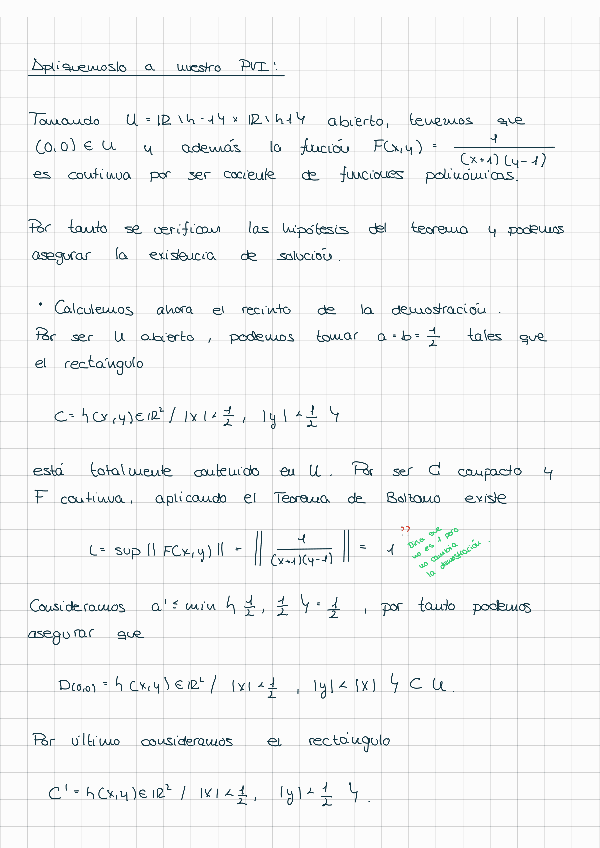 Apliquemoslo a nuestro PVI:
Tomando U = ℝ\{-1} × ℝ\{1} abierto, tenemos que
(0,0) ∈ U y además la función F(x,y) = 1/((x+1)(y-1))
es continua por ser cociente de funciones polinómicas.
Por tanto se verifican las hipótesis del teorema y podemos
asegurar la existencia de solución.
• Calculemos ahora el recinto de la demostración.
Por ser U abierto, podemos tomar a=b=1/2 tales que
el rectángulo
C = {(x,y) ∈ ℝ² / |x| < 1/2, |y| < 1/2}
está totalmente contenido en U. Por ser C compacto y
F continua, aplicando el Teorema de Bolzano existe
L = sup || F(x,y) || = || 1/((x+1)(y-1)) || = 1 ??
Diría que
no es 1 pero
no cambia
la demostración.
Consideramos a' ≤ min {1/2, 1/2} = 1/2, por tanto podemos
asegurar que
D(0,0) = {(x,y) ∈ ℝ² / |x| < 1/2, |y| < |x|} ⊂ U.
Por último consideramos el rectángulo
C' = {(x,y) ∈ ℝ² / |x| < 1/2, |y| < 1/2}.